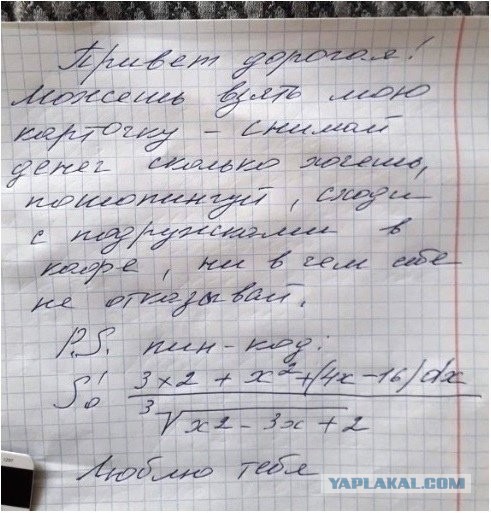 Привет дорогая!
Можешь взять мою
карточку – снимай
денег сколько хочешь,
пошопингуй, сходи
с подружками в
кафе, ни в чем себе
не отказывай.
P.S. пин-код:
∫₀¹ 3×2 + x² + (4x – 16) dx
³√x2 – 3x + 2
Люблю тебя
YAPLAKAL.COM